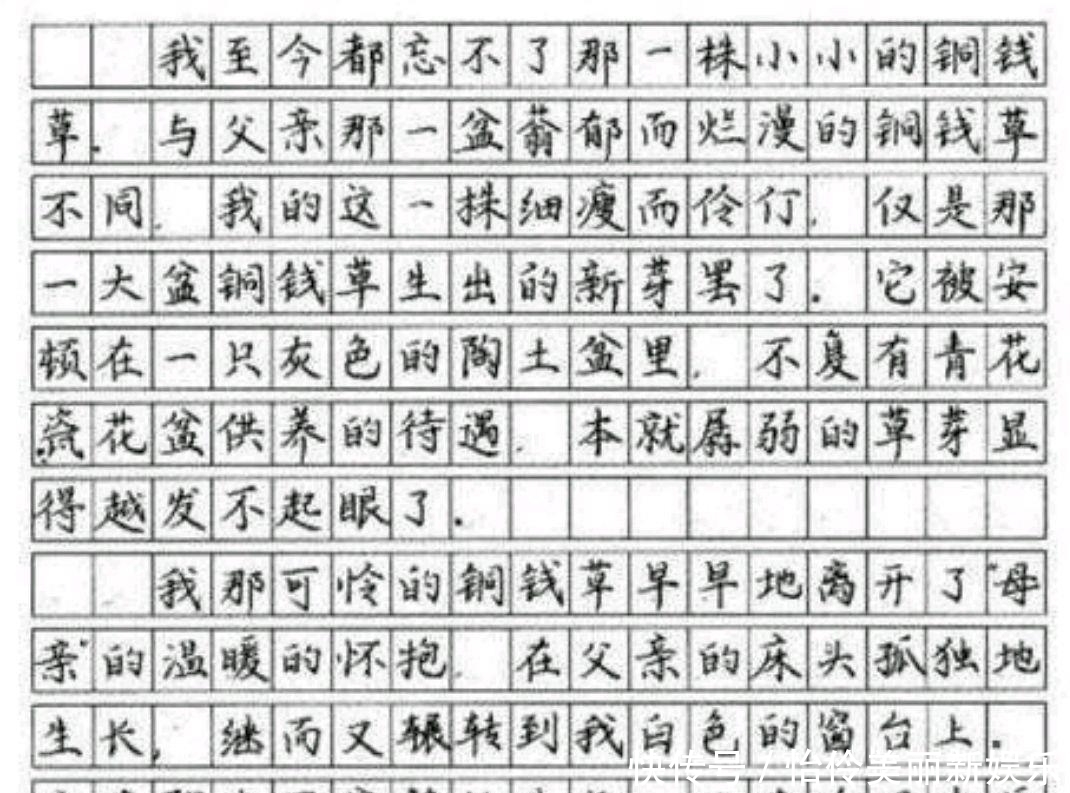 我至今都忘不了那一株小小的铜钱
草. 与父亲那一盆蓊郁而烂漫的铜钱草
不同, 我的这一株细瘦而伶仃, 仅是那
一大盆铜钱草生出的新芽罢了. 它被安
顿在一只灰色的陶土盆里, 不复有青花
瓷花盆供养的待遇, 本就孱弱的草芽显
得越发不起眼了.
我那可怜的铜钱草早早地离开了"母
亲"的温暖的怀抱, 在父亲的床头孤独地
生长, 继而又辗转到我白色的窗台上.
快传号/怡怜美丽新娱乐